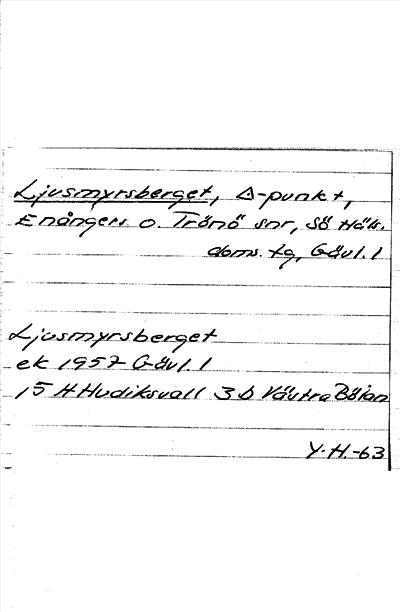 Ljusmyrsberget, △-punkt,
Enångers o. Trönö snr, Sö Häls.
doms. tg, Gävl. l
Ljusmyrsberget
ek 1957 Gävl. l
15 H Hudiksvall 3 b Västra Böjan
Y. H.-63